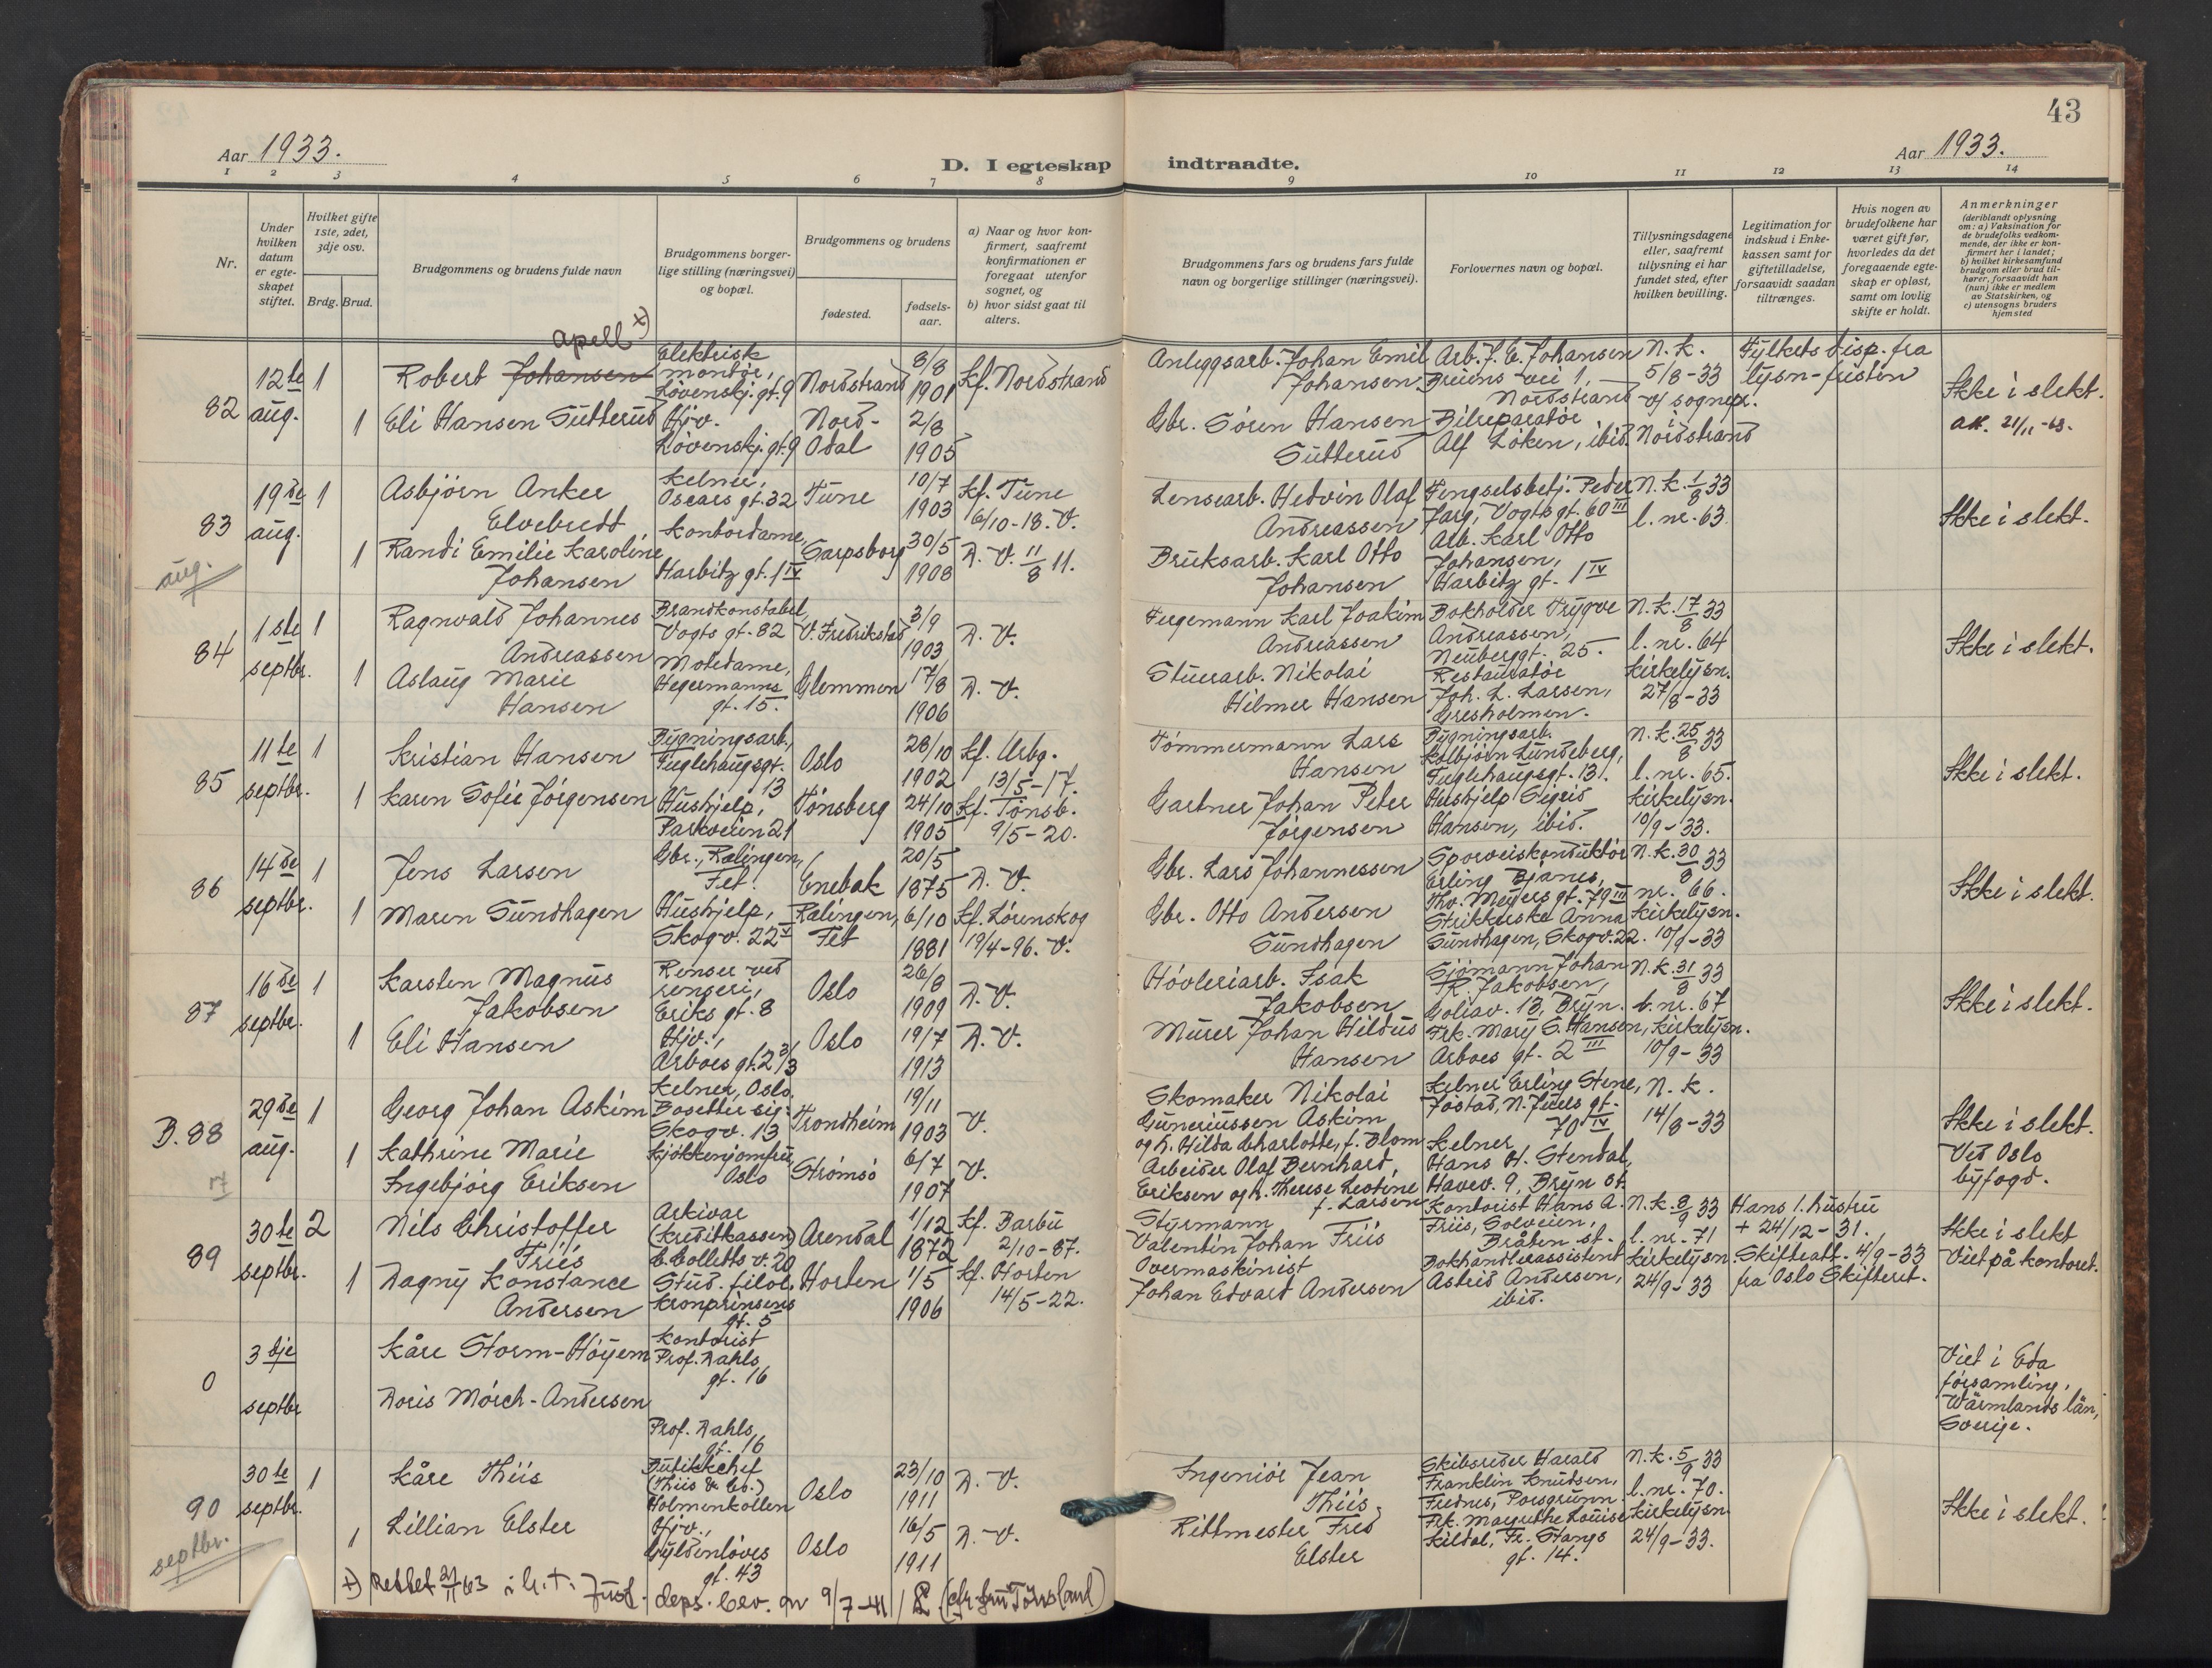 43
Aar 1933.
D. I egteskap indtraadte.
Aar 1933.
1 2 3 4 5 6 7 8 9 10 11 12 13 14
Nr.
Under hvilken datum er egteskapet stiftet.
Hvilket gifte 1ste, 2det, 3dje osv.
Brdg. Brud.
Brudgommens og brudens fulde navn
Brudgommens borgerlige stilling (næringsvei) og bopæl.
Brudgommens og brudens
fødested.
fødselsaar.
a) Naar og hvor konfirmert, saafremt konfirmationen er foregaat utenfor sognet, og
b) hvor sidst gaat til alters.
Brudgommens fars og brudens fars fulde navn og borgerlige stillinger (næringsvei).
Forlovernes navn og bopæl.
Tillysningsdagene eller, saafremt tillysning ei har fundet sted, efter hvilken bevilling.
Legitimation for indskud i Enkekassen samt for giftetilladelse, forsaavidt saadan tiltrænges.
Hvis nogen av brudefolkene har været gift før, hvorledes da det foregaaende egteskap er opløst, samt om lovlig skifte er holdt.
Anmerkninger
(deriblandt oplysning om: a) Vaksination for de brudefolks vedkommende, der ikke er konfirmert her i landet; b) hvilket kirkesamfund brudgom eller brud tilhører, forsaavidt han (hun) ikke er medlem av Statskirken, og c) utensogns bruders hjemsted
82 12te aug. 1 Robert Johansen Apell x) Elektrisk montør, Løvenskj. gt. 9 Nordstrand 8/8 1901 Kf. Nordstrand
Anleggsarb. Johan Emil Johansen Arb. J. E. Johansen Bruens vei 1, Nordstrand N.k. 5/8-33 v/ sognepr. i Nordstrand Fylkets disp. fra lysn-fristen Ikke i slekt.
1 Eli Hansen Sutterud Hjv. Løvenskj. gt. 9 Nord-Odal 2/8 1905
Gbr. Søren Hansen Sutterud Bilreparatør Alf Løken, ibid. 21/11-63.
83 19de aug. 1 Asbjørn Anker Elvebredt Kelner, Oscars gt. 32 Tune 10/7 1903 Kf. Tune 6/10-18. V.
Lensearb. Hedvin Olaf Andreassen Fengselsbetj. Peder Jarg, Vogts gt. 60 III N.k. 1/8 33 l. nr. 63. Ikke i slekt.
1 Randi Emilie Karoline Johansen Kontordame, Harbitz gt. 1 IV Sarpsborg 30/5 1908 D. V. 11/8 11.
Bruksarb. Karl Otto Johansen Arb. Karl Otto Johansen, Harbitz gt. 1 IV
aug.
84 1ste septbr. 1 Ragnvald Johannes Andreassen Brandkonstabel, Vogts gt. 82 V. Fredrikstad 3/9 1903 D. V.
Fergemann Karl Joakim Andreassen Bokholder Trygve Andreassen, Neuberggt. 25. N.k. 17/8 33 l. nr. 64 Kirkelysn. 27/8-33 Ikke i slekt.
1 Aslaug Marie Hansen Motedame, Hegermanns gt. 15. Glemmen 17/8 1906 D. V.
Stuerarb. Nikolai Hilmer Hansen Restauratør Joh. L. Larsen, Gresholmen.
85 11te septbr. 1 Kristian Hansen Bygningsarb., Fuglehaugsgt. 13 Oslo 28/10 1902 Kf. Urbg. 13/5-17.
Tømmermann Lars Hansen Bygningsarb. Kolbjørn Lundeberg, Fuglehaugsgt. 13. N.k. 25/8 33 l. nr. 65. Kirkelysn. 10/9-33. Ikke i slekt.
1 Karen Sofie Jørgensen Hushjelp, Parkveien 21 Tønsberg 24/10 1905 Kf. Tønsb. 9/5-20.
Gartner Johan Peter Jørgensen Hushjelp Sigrid Hansen, ibid.
86 14de septbr. 1 Jens Larsen Gbr., Rælingen, Fet. Enebak 20/5 1875 D. V.
Gbr. Lars Johannessen Sporveiskonduktør Erling Bjånes, Thv. Meyers gt. 79 III N.k. 30/8 33 nr. 66. Kirkelysn. 10/9-33 Ikke i slekt.
1 Maren Sundhagen Hushjelp, Skogv. 22 V Rælingen, Fet 6/10 1881 Kf. Lørenskog 19/4-96. V.
Gbr. Otto Andersen Sundhagen Strikkerske Anna Sundhagen, Skogv. 22.
87 16de septbr. 1 Karsten Magnus Jakobsen Renser ved renseri, Eriks gt. 8 Oslo 26/8 1909 D. V.
Høvleriarb. Isak Jakobsen Sjømann Johan R. Jakobsen, Goliav. 13, Bryn. N.k. 31/8 33 l. nr. 67 Kirkelysn. 10/9-33 Ikke i slekt.
1 Eli Hansen Hjv., Arboes gt. 2 3/3 Oslo 19/7 1913 D. V.
Murer Johan Hildus Hansen Frk. Mary S. Hansen, Arboes gt. 2 III
B. 88 29de aug. 1 Georg Johan Askim Kelner, Oslo. Bosetter sig: Skogv. 13 Trondheim 19/11 1903 V.
Skomaker Nikolai Guneriussen Askim og h. Hilda Charlotte, f. Blom Kelner Erling Stene, Jøstad, N. Juels gt. 70 IV N.k. 14/8-33 Ikke i slekt. Ved Oslo byfogd.
1 Kathrine Marie Ingebjørg Eriksen Kjøkkenjomfru, Oslo Strømsø 6/7 1907 V.
Arbeider Olaf Bernhard, Eriksen og h. Therese Lestine f. Larsen Kelner Hans H. Stendal, Havev. 9, Bryn st.
17
89 30te septbr. 2 Nils Christoffer Friis Arkivar (Kreditkassen) C. Colletts v. 20 Arendal 1/12 1872 Kf. Barbu 2/10-87.
Styrmann Valentin Johan Friis Kontorist Hans A. Friis, Solveien, Bråten st. N.k. 8/9 33 l. nr. 71 Kirkelysn. 24/9-33 Hans 1. hustru + 24/12-31. Skifteatt. 4/9-33 fra Oslo Skifteret. Ikke i slekt Viet på kontoret.
1 Dagny Konstance Andersen Stud. filol. Kronprinsens gt. 5 Horten 1/5 1906 Kf. Horten 14/5-22.
Overmaskinist Johan Edvard Andersen Bokhandlerassistent Astrid Andersen, ibid.
0 3dje septbr Kåre Storm-Høyem Kontorist Prof. Dahls gt. 16
Doris Mørch-Andersen Prof. Dahls gt. 16
Viet i Eda församling, Wärmlands län, Sverige.
90 30te septbr. 1 Kåre Thiis Butikkchef (Thiis & Co.) Holmenkollen Oslo 23/10 1911 D. V.
Ingeniør Jean Thiis. Skibsreder Harald Franklin Knudsen, Frednes, Porsgrunn N.k. 5/9 33 l. nr. 70. Kirkelysn. 24/9-33. Ikke i slekt.
1 Lillian Elster Hjv., Gyldenløves gt. 43 Oslo 16/5 1911 D. V.
Rittmester Fred Elster Frk. Margrethe Louise Kildal, Fr. Stangs gt. 14.
septbr.
x) Rettet 21/11 63 i h. t. Just. deps. bev. av 9/7-41